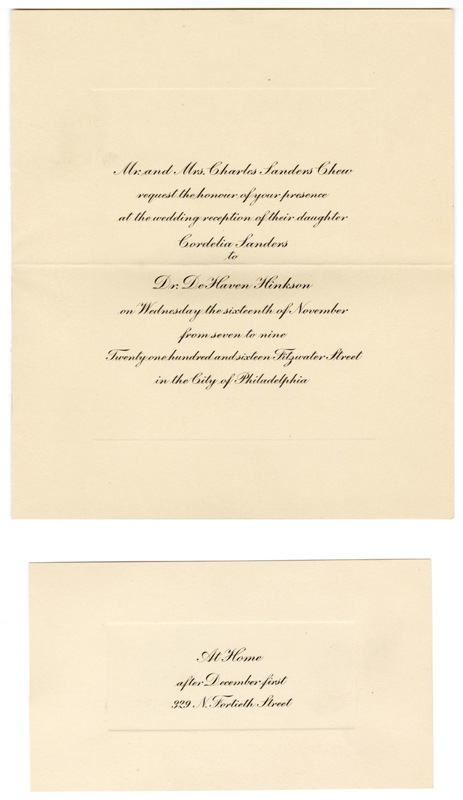 Mr. and Mrs. Charles Sanders Chew
request the honour of your presence
at the wedding reception of their daughter
Cordelia Sanders
to
Dr. De Haven Hinkson
on Wednesday the sixteenth of November
from seven to nine
Twenty one hundred and sixteen Fitzwater Street
in the City of Philadelphia
At Home
after December first
929 N. Fortieth Street